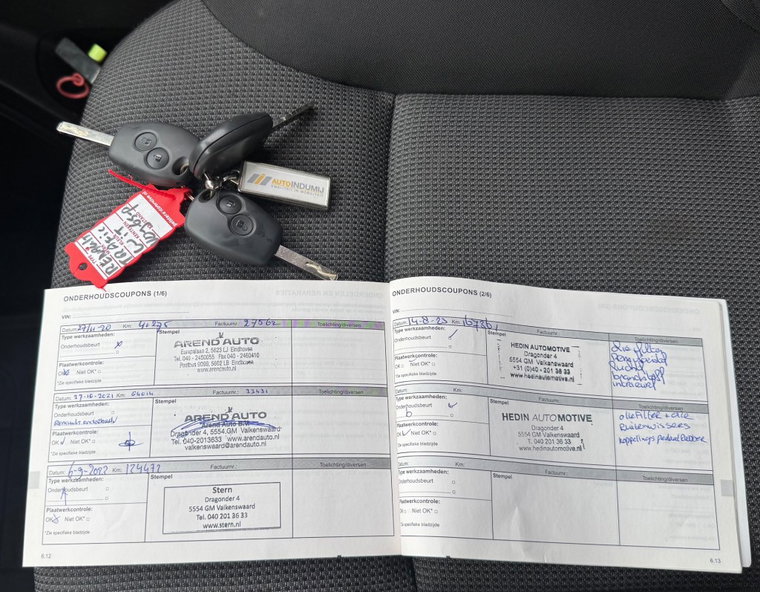 AUTOINDUMIJ
KWALITEIT IN MOBILITEIT
RENAULT
TRAFIC
WIT
ONDERHOUDSCOUPONS (1/6)
VIN:
Datum: 27/11/20 Km: 41275 Factuurnr.: 27562 Toelichting/diversen
Type werkzaamheden: Stempel
Onderhoudsbeurt
AREND AUTO
Europalaan 2, 5623 LJ Eindhoven
Tel. 040 - 2450055 Fax 040 - 2460416
Postbus 9069, 5602 LB Eindhoven
www.arendauto.nl
Plaatwerkcontrole:
OK Niet OK*
*Zie specifieke bladzijde
Datum: 27-10-2021 Km: Factuurnr.: Toelichting/diversen
Type werkzaamheden: Stempel
Onderhoudsbeurt
AREND AUTO
Arend Auto B.V.
Dragonder 4, 5554 GM Valkenswaard
Tel. 040-2013633 www.arendauto.nl
valkenswaard@arendauto.nl
Plaatwerkcontrole:
OK Niet OK*
*Zie specifieke bladzijde
Datum: 6-9-2022 Km: 124432 Factuurnr.: Toelichting/diversen
Type werkzaamheden: Stempel
Onderhoudsbeurt
Stern
Dragonder 4
5554 GM Valkenswaard
Tel. 040 201 36 33
www.stern.nl
Plaatwerkcontrole:
OK Niet OK*
*Zie specifieke bladzijde
6.12
ONDERHOUDSCOUPONS (2/6)
VIN:
Datum: 14-8-23 Km: Factuurnr.: Toelichting/diversen
Type werkzaamheden: Stempel
Onderhoudsbeurt
HEDIN AUTOMOTIVE
Dragonder 4
5554 GM Valkenswaard
+31 (0)40 - 201 36 33
www.hedinautomotive.nl
Plaatwerkcontrole:
OK Niet OK*
*Zie specifieke bladzijde
olie filter
brandstof
interieur
Datum: Km: Factuurnr.: Toelichting/diversen
Type werkzaamheden: Stempel
Onderhoudsbeurt
HEDIN AUTOMOTIVE
Dragonder 4
5554 GM Valkenswaard
040 201 36 33
www.hedinautomotive.nl
Plaatwerkcontrole:
OK Niet OK*
*Zie specifieke bladzijde
oliefilter + olie
Ruitenwissers
Datum: Km: Factuurnr.: Toelichting/diversen
Type werkzaamheden: Stempel
Onderhoudsbeurt
Plaatwerkcontrole:
OK Niet OK*
*Zie specifieke bladzijde
6.13